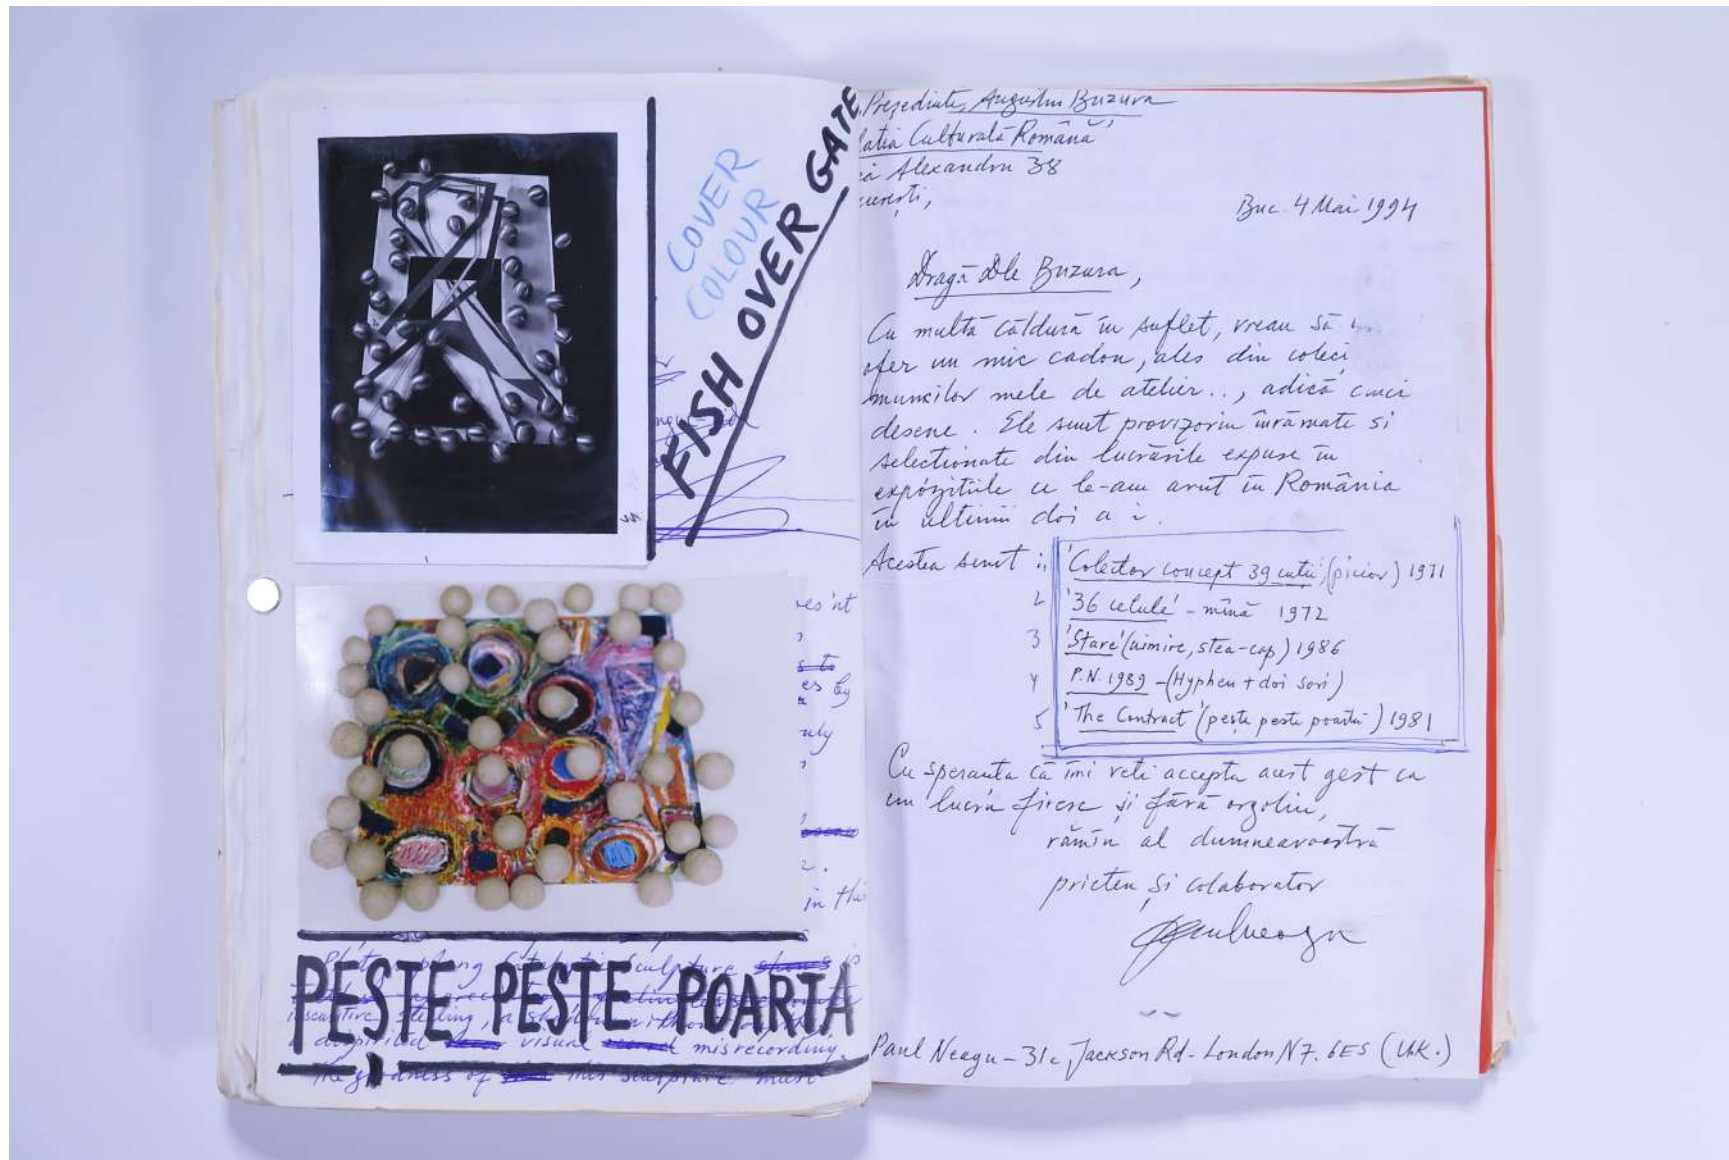 COVER
COLOUR
FISH OVER GATE
es'nt
s to
es by
in this
PEȘTE PESTE POARTA
Sculpture shows is
visual misrecording.
The goodness of this sculpture must
Președinte, Augustin Buzura
Culturală Română
Alexandru 38
Buc. 4 Mai 1994
Dragă Dle Buzura,
Cu multă căldură în suflet, vreau să
ofer un mic cadou, ales din colecț
muncilor mele de atelier.., adică cinci
desene. Ele sunt provizoriu înrămate si
selectionate din lucrările expuse în
expozițiile ce le-am avut în România
în ultimii doi a i.
Acestea sunt : 1, 'Colector concept 39 cutii', (picior) 1971
2 '36 celule' - mînă 1972
3 'Stare' (uimire, stea-cap) 1986
4 P.N. 1989 - (Hyphen + doi sori)
5 'The Contract' (pește peste poartă) 1981
Cu speranta că îmi veti accepta acest gest ca
un lucru firesc și fără orgoliu,
rămîn al dumneavoastră
prieten și colaborator
Paul Neagu
Paul Neagu - 31c Jackson Rd - London N7. 6ES (U.K.)